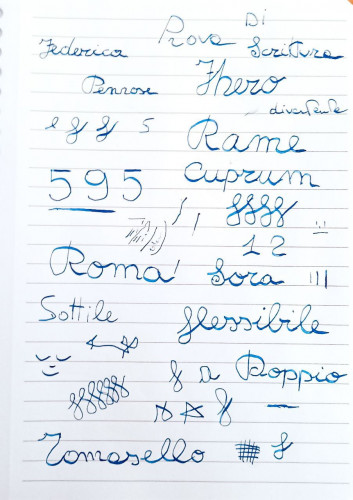 Prova Di
Federica Scrittura
Penrose Jhero
divertente
e f f 5 Rame
595 Cuprum
ffff
12
Roma' Sora
Sottile flessibile
f Doppio
Tomasello f